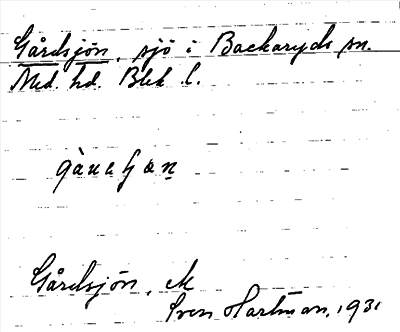 Gårdsjön, sjö i Backaryds sn.
Med. hd. Blek. l.
Gårdsjön, M
Sven Hartman, 1931